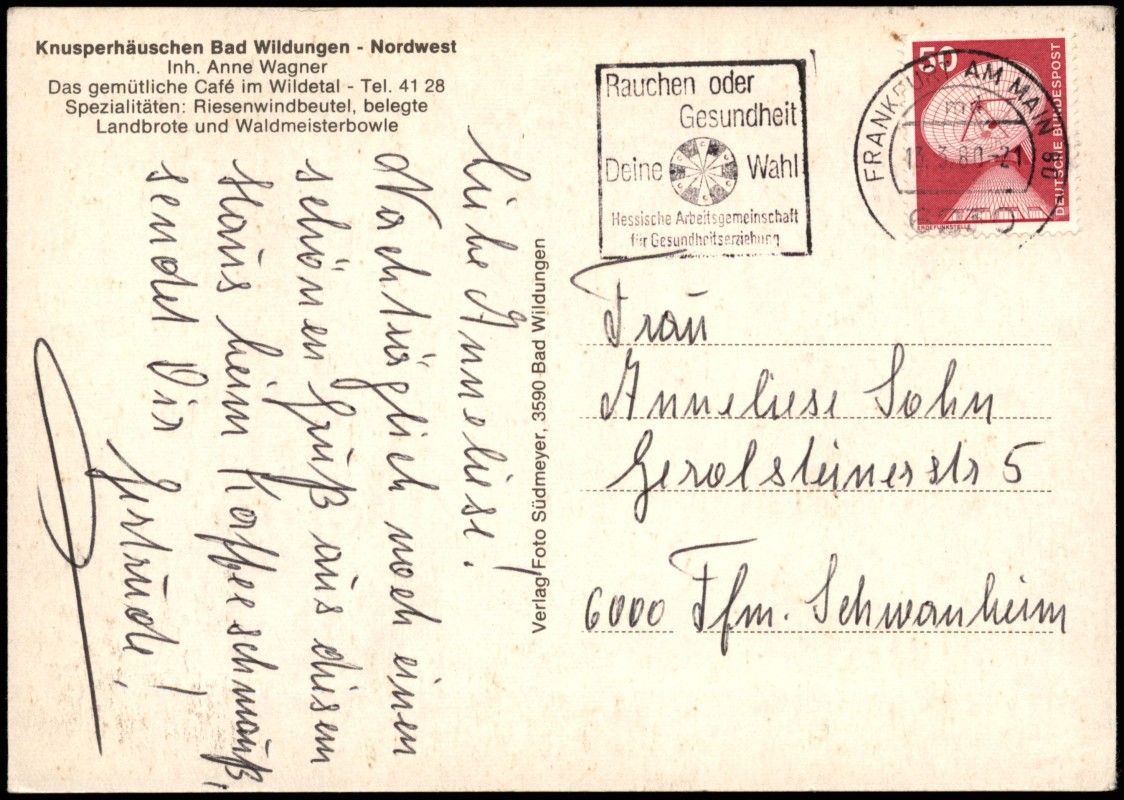 Knusperhäuschen Bad Wildungen - Nordwest
Inh. Anne Wagner
Das gemütliche Café im Wildetal - Tel. 41 28
Spezialitäten: Riesenwindbeutel, belegte
Landbrote und Waldmeisterbowle
Liebe Anneliese!
Nachträglich noch einen
schönen Gruß aus diesem
Haus beim Kaffeeschmauß,
sendet Dir
Gertrude!
Verlag Foto Südmeyer, 3590 Bad Wildungen
Rauchen oder
Gesundheit
Deine Wahl
Hessische Arbeitsgemeinschaft
für Gesundheitserziehung
FRANKFURT AM MAIN 80
50
DEUTSCHE BUNDESPOST
ERDEFUNKSTELLE
Frau
Anneliese Sohn
Gerolsteinerstr 5
6000 Ffm. Schwanheim